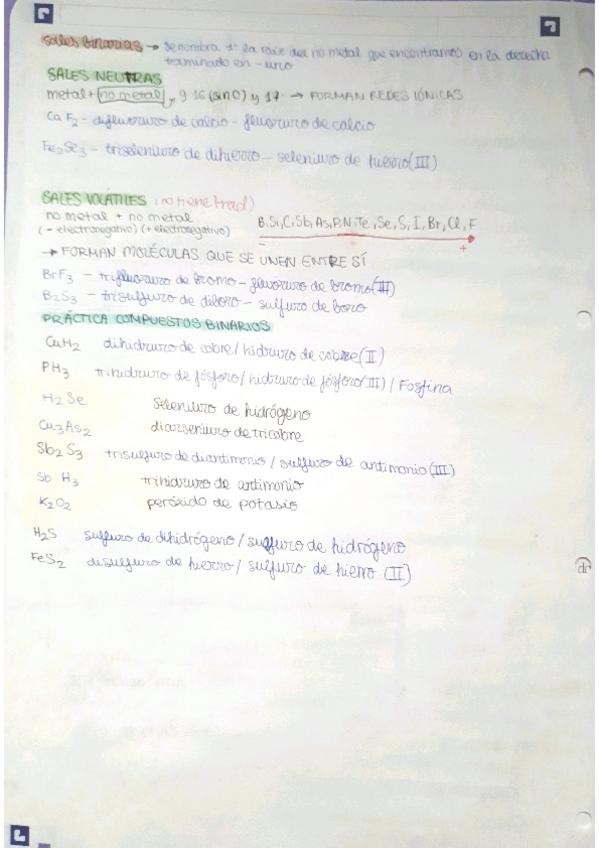 Sales Binarias → Se nombra 1º la raíz del no metal que encontramos en la derecha
terminado en -uro
SALES NEUTRAS
metal + no metal, 16 (sin O) y 17. → FORMAN REDES IÓNICAS
CaF2 - difluoruro de calcio - fluoruro de calcio
Fe2Se3 - triseleniuro de dihierro - seleniuro de hierro (III)
SALES VOLÁTILES (no metal)
no metal + no metal
B, Si, C, Sb, As, P, N, Te, Se, S, I, Br, Cl, F
(- electronegativo) (+ electronegativo)
- +
→ FORMAN MOLÉCULAS QUE SE UNEN ENTRE SÍ
BrF3 - trifluoruro de bromo - fluoruro de bromo (III)
B2S3 - trisulfuro de diboro - sulfuro de boro
PRÁCTICA COMPUESTOS BINARIOS
CuH2 dihidruro de cobre / hidruro de cobre (II)
PH3 trihidruro de fósforo / hidruro de fósforo (III) / Fosfina
H2Se Seleniuro de hidrógeno
Cu3As2 diarseniuro de tricobre
Sb2S3 trisulfuro de diantimonio / sulfuro de antimonio (III)
SbH3 trihidruro de antimonio
K2O2 peróxido de potasio
H2S sulfuro de dihidrógeno / sulfuro de hidrógeno
FeS2 disulfuro de hierro / sulfuro de hierro (II)